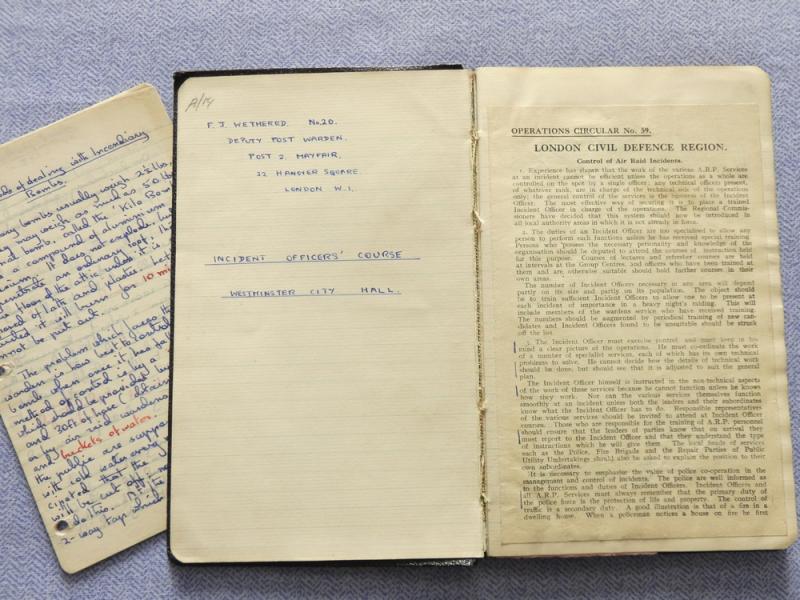 of dealing with Incendiary
Bombs.
bombs usually weigh 2½ lbs.
may weigh as much as 50 lbs
bomb, called the "Kilo Bomb
compound of aluminium
It does not explode, but
penetrate an ordinary roof,
floor of the attic unless it is
of lath and plaster; bet
it will burn for 10 mi
not be put out.
The problem which faces the
warden is how best to control
bomb when once it has fal
method of control is by
which should be provided
and 30ft of hose (
by air raid wardens
and buckets of water.
the public are suppo
with cold water
that the
will be cut off,
do this.
2-way tap which
A/14
F. J. WETHERED. No. 20.
DEPUTY POST WARDEN.
POST 2. MAYFAIR.
22 HANOVER SQUARE.
LONDON W.1.
INCIDENT OFFICERS' COURSE
WESTMINSTER CITY HALL.
OPERATIONS CIRCULAR No. 59.
LONDON CIVIL DEFENCE REGION.
Control of Air Raid Incidents.
1. Experience has shown that the work of the various A.R.P. Services
at an incident cannot be efficient unless the operations as a whole are
controlled on the spot by a single officer; any technical officers present,
of whatever rank, are in charge of the technical side of the operations
only; the general control of the services is the business of the Incident
Officer. The most effective way of securing it is to place a trained
Incident Officer in charge of the operations. The Regional Commis-
sioners have decided that this system should now be introduced in
all local authority areas in which it is not already in force.
2. The duties of an Incident Officer are too specialised to allow any
person to perform such functions unless he has received special training.
Persons who possess the necessary personality and knowledge of the
organisation should be deputed to attend the courses of instruction held
for this purpose. Courses of lectures and refresher courses are held
at intervals at the Group Centres, and officers who have been trained at
them and are otherwise suitable should hold further courses in their
own areas.
The number of Incident Officers necessary in any area will depend
partly on the size and partly on its population. The object should
be to train sufficient Incident Officers to allow one to be present at
each incident of importance in a heavy night's raiding. This will
include members of the wardens service who have received training.
The numbers should be augmented by periodical training of new can-
didates and Incident Officers found to be unsuitable should be struck
off the list.
3. The Incident Officer must exercise control and must keep in his
mind a clear picture of the operations. He must co-ordinate the work
of a number of specialist services, each of which has its own technical
problems to solve. He cannot decide how the details of technical work
should be done, but should see that it is adjusted to suit the general
plan.
The Incident Officer himself is instructed in the non-technical aspects
of the work of these services because he cannot function unless he knows
how they work. Nor can the various services themselves function
smoothly at an incident unless both the leaders and their subordinates
know what the Incident Officer has to do. Responsible representatives
of the various services should be invited to attend at Incident Officer
courses. Those who are responsible for the training of A.R.P. personnel
should ensure that the leaders of parties know that on arrival they
must report to the Incident Officer and that they understand the type
of instructions which he will give them. The local heads of services
such as the Police, Fire Brigade and the Repair Parties of Public
Utility Undertakings should also be asked to explain the position to their
own subordinates.
It is necessary to emphasise the value of police co-operation in the
management and control of incidents. The police are well informed as
to the functions and duties of Incident Officers. Incident Officers and
all A.R.P. Services must always remember that the primary duty of
the police force is the protection of life and property. The control of
traffic is a secondary duty. A good illustration is that of a fire in a
dwelling house. When a policeman notices a house on fire he first